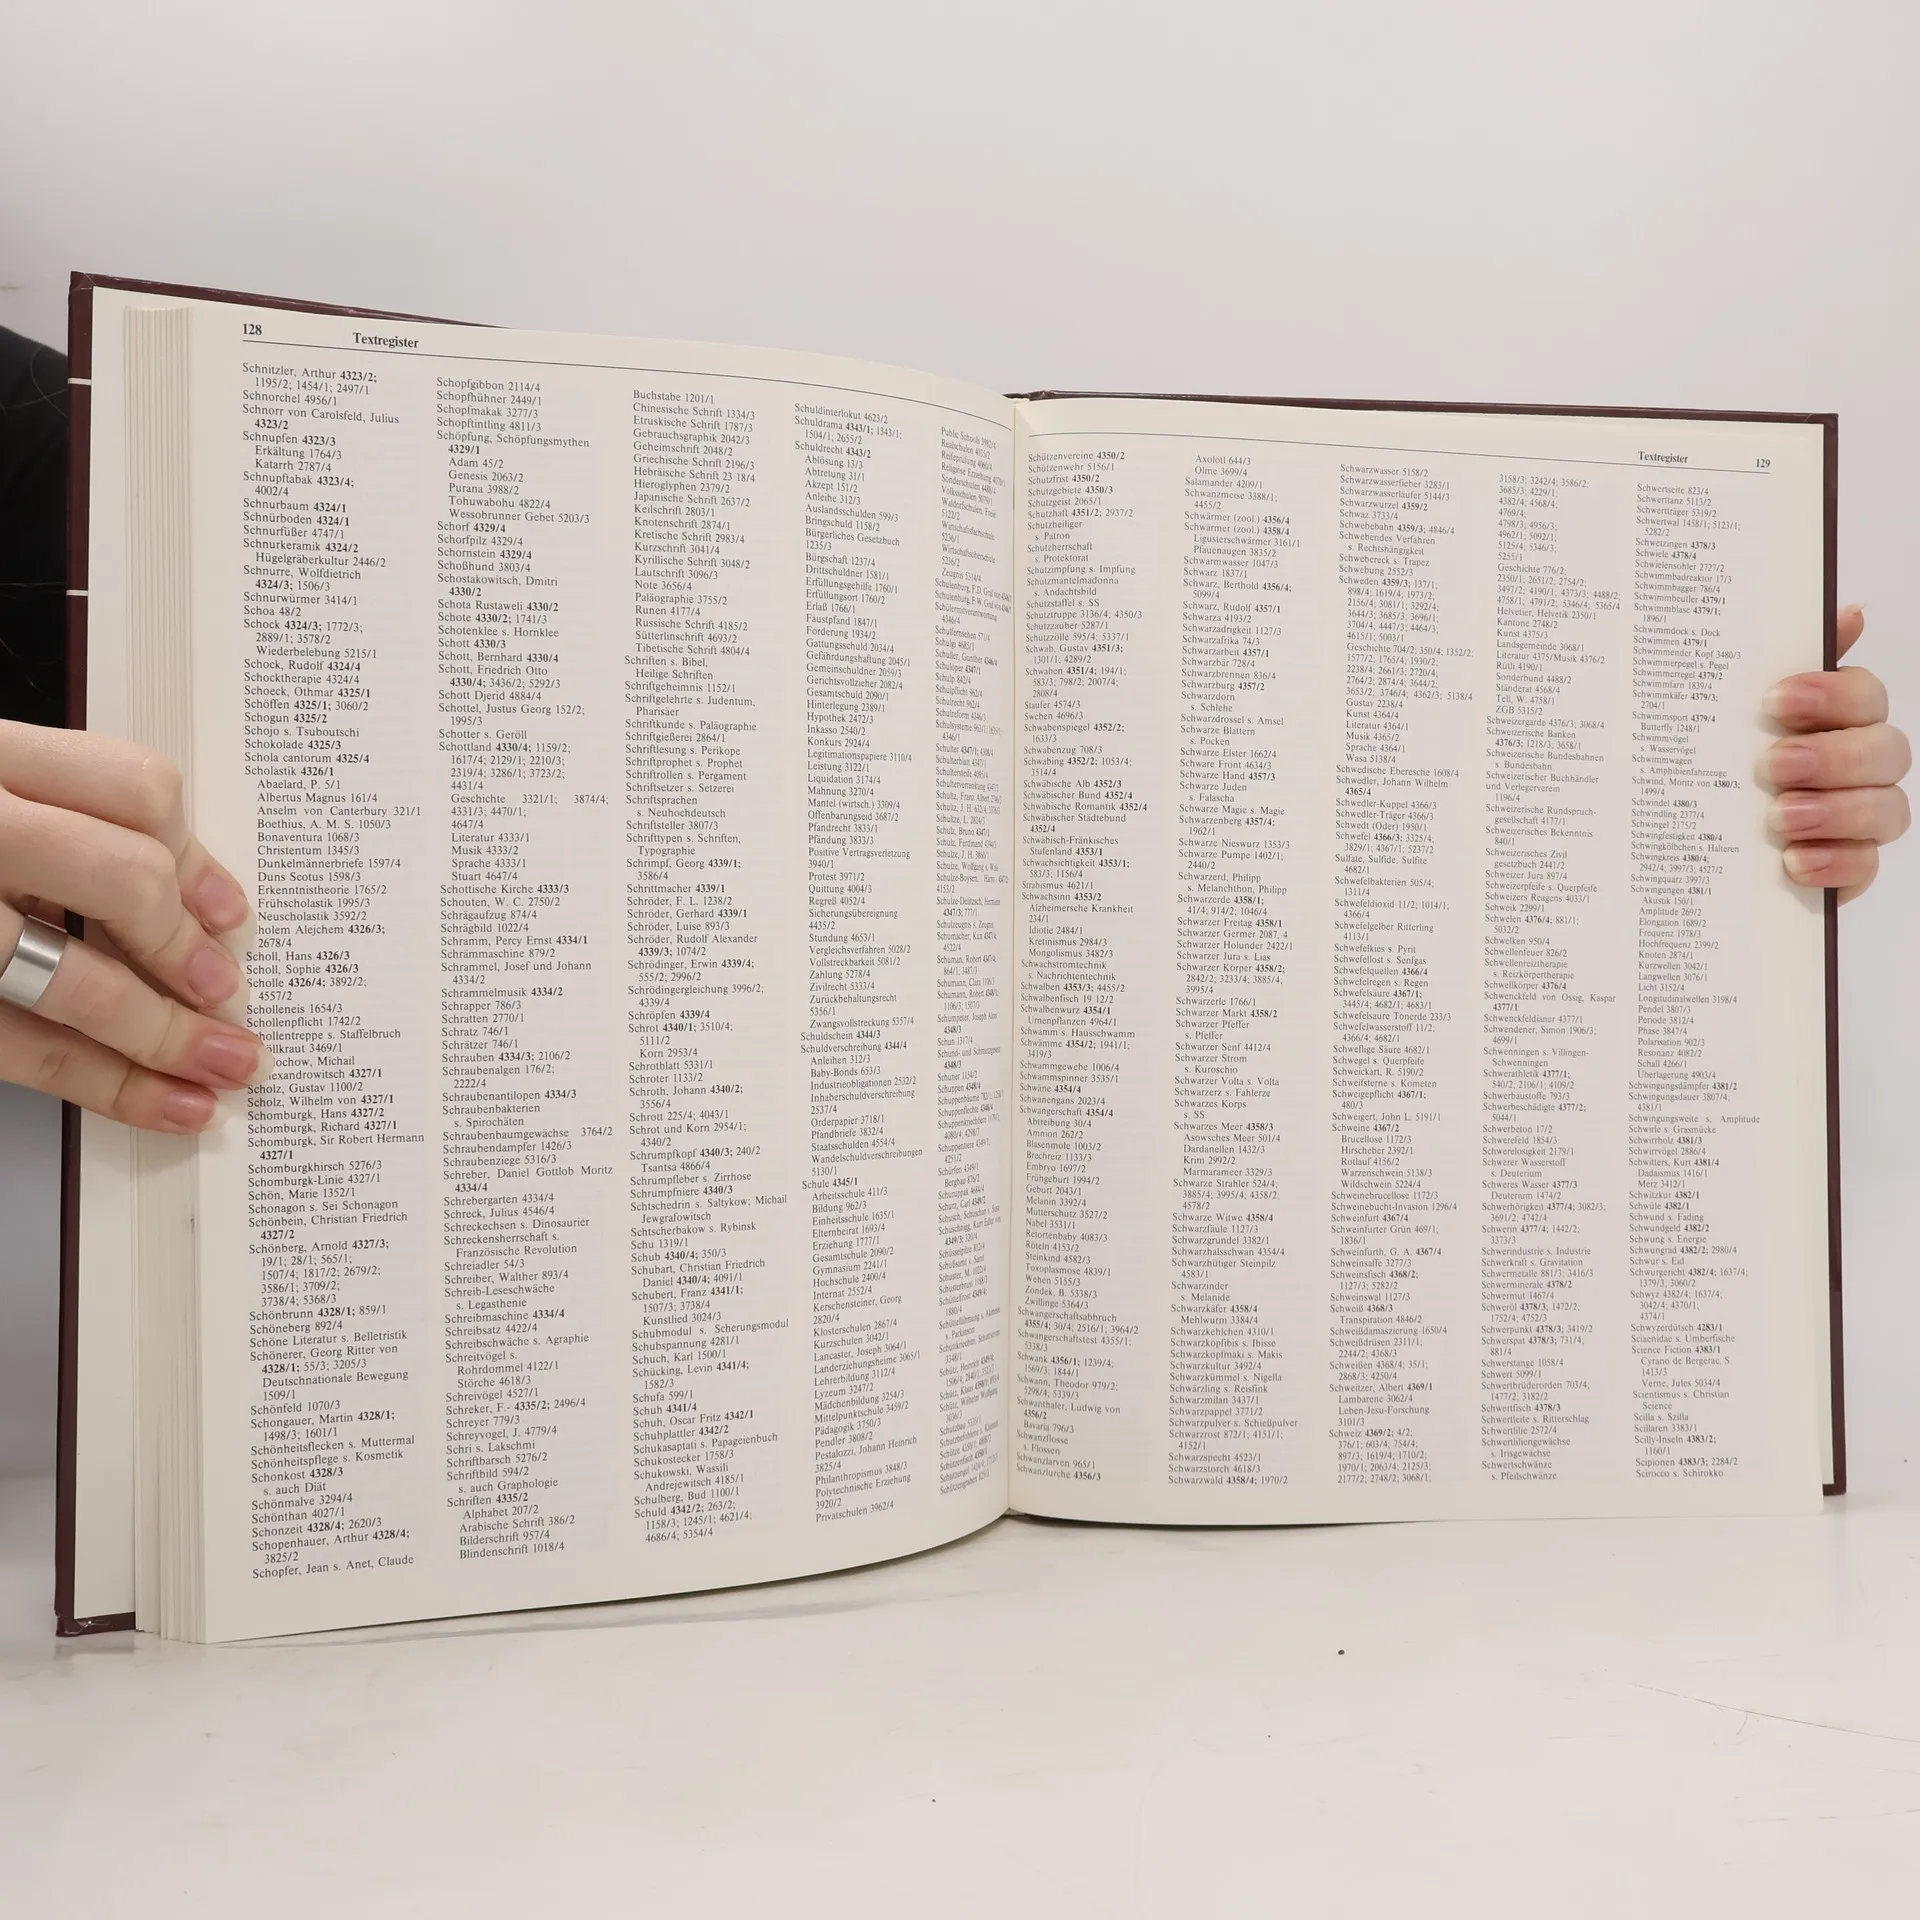 128
Textregister
Schnitzler, Arthur 4323/2;
1195/2; 1454/1; 2497/1
Schnorchel 4956/1
Schnorr von Carolsfeld, Julius
4323/2
Schnupfen 4323/3
Erkältung 1764/3
Katarrh 2787/4
Schnupftabak 4323/4;
4002/4
Schnurbaum 4324/1
Schnürboden 4324/1
Schnurfüßer 4747/1
Schnurkeramik 4324/2
Hügelgräberkultur 2446/2
Schnurre, Wolfdietrich
4324/3; 1506/3
Schnurwürmer 3414/1
Schoa 48/2
Schock 4324/3; 1772/3;
2889/1; 3578/2
Wiederbelebung 5215/1
Schock, Rudolf 4324/4
Schocktherapie 4324/4
Schoeck, Othmar 4325/1
Schöffen 4325/1; 3060/2
Schogun 4325/2
Schojo s. Tsuboutschi
Schokolade 4325/3
Schola cantorum 4325/4
Scholastik 4326/1
Abaelard, P. 5/1
Albertus Magnus 161/4
Anselm von Canterbury 321/1
Boethius, A. M. S. 1050/3
Bonaventura 1068/3
Christentum 1345/3
Dunkelmännerbriefe 1597/4
Duns Scotus 1598/3
Erkenntnistheorie 1765/2
Frühscholastik 1995/3
Neuscholastik 3592/2
Alejchem 4326/3;
2678/4
Scholl, Hans 4326/3
Scholl, Sophie 4326/3
Scholle 4326/4; 3892/2;
4557/2
Scholleneis 1654/3
Schollenpflicht 1742/2
s. Staffelbruch
3469/1
Michail
4327/1
Scholz, Gustav 1100/2
Scholz, Wilhelm von 4327/1
Schomburgk, Hans 4327/2
Schomburgk, Richard 4327/1
Schomburgk, Sir Robert Hermann
4327/1
Schomburgkhirsch 5276/3
Schomburgk-Linie 4327/1
Schön, Marie 1352/1
Schonagon s. Sei Schonagon
Schönbein, Christian Friedrich
4327/2
Schönberg, Arnold 4327/3;
19/1; 28/1; 565/1;
1507/4; 1817/2; 2679/2;
3586/1; 3709/2;
3738/4; 5368/3
Schönbrunn 4328/1; 859/1
Schöneberg 892/4
Schöne Literatur s. Belletristik
Schönerer, Georg Ritter von
4328/1; 55/3; 3205/3
Deutschnationale Bewegung
1509/1
Schönfeld 1070/3
Schongauer, Martin 4328/1;
1498/3; 1601/1
Schönheitsflecken s. Muttermal
Schönheitspflege s. Kosmetik
Schonkost 4328/3
s. auch Diät
Schönmalve 3294/4
Schönthan 4027/1
Schonzeit 4328/4; 2620/3
Schopenhauer, Arthur 4328/4;
3825/2
Schopfer, Jean s. Anet, Claude
Schopfgibbon 2114/4
Schopfhühner 2449/1
Schopfmakak 3277/3
Schopftintling 4811/3
Schöpfung, Schöpfungsmythen
4329/1
Adam 45/2
Genesis 2063/2
Purana 3988/2
Tohuwabohu 4822/4
Wessobrunner Gebet 5203/3
Schorf 4329/4
Schorfpilz 4329/4
Schornstein 4329/4
Schoßhund 3803/4
Schostakowitsch, Dmitri
4330/2
Schota Rustaweli 4330/2
Schote 4330/2; 1741/3
Schotenklee s. Hornklee
Schott 4330/3
Schott, Bernhard 4330/4
Schott, Friedrich Otto
4330/4; 3436/2; 5292/3
Schott Djerid 4884/4
Schottel, Justus Georg 152/2;
1995/3
Schotter s. Geröll
Schottland 4330/4; 1159/2;
1617/4; 2129/1; 2210/3;
2319/4; 3286/1; 3723/2;
4431/4
Geschichte 3321/1; 3874/4;
4331/3; 4470/1;
4647/4
Literatur 4333/1
Musik 4333/2
Sprache 4333/1
Stuart 4647/4
Schottische Kirche 4333/3
Schouten, W. C. 2750/2
Schrägaufzug 874/4
Schrägbild 1022/4
Schramm, Percy Ernst 4334/1
Schrämmaschine 879/2
Schrammel, Josef und Johann
4334/2
Schrammelmusik 4334/2
Schrapper 786/3
Schratten 2770/1
Schratz 746/1
Schrätzer 746/1
Schrauben 4334/3; 2106/2
Schraubenalgen 176/2;
2222/4
Schraubenantilopen 4334/3
Schraubenbakterien
s. Spirochäten
Schraubenbaumgewächse 3764/2
Schraubendampfer 1426/3
Schraubenziege 5316/3
Schreber, Daniel Gottlob Moritz
4334/4
Schrebergarten 4334/4
Schreck, Julius 4546/4
Schreckechsen s. Dinosaurier
Schreckensherrschaft s.
Französische Revolution
Schreiadler 54/3
Schreiber, Walther 893/4
Schreib-Leseschwäche
s. Legasthenie
Schreibmaschine 4334/4
Schreibsatz 4422/4
Schreibschwäche s. Agraphie
Schreitvögel s.
Rohrdommel 4122/1
Störche 4618/3
Schreivögel 4527/1
Schreker, F.- 4335/2; 2496/4
Schreyer 779/3
Schreyvogel, J. 4779/4
Schri s. Lakschmi
Schriftbarsch 5276/2
Schriftbild 594/2
s. auch Graphologie
Schriften 4335/2
Alphabet 207/2
Arabische Schrift 386/2
Bilderschrift 957/4
Blindenschrift 1018/4
Buchstabe 1201/1
Chinesische Schrift 1334/3
Etruskische Schrift 1787/3
Gebrauchsgraphik 2042/3
Geheimschrift 2048/2
Griechische Schrift 2196/3
Hebräische Schrift 23 18/4
Hieroglyphen 2379/2
Japanische Schrift 2637/2
Keilschrift 2803/1
Knotenschrift 2874/1
Kretische Schrift 2983/4
Kurzschrift 3041/4
Kyrillische Schrift 3048/2
Lautschrift 3096/3
Note 3656/4
Paläographie 3755/2
Runen 4177/4
Russische Schrift 4185/2
Sütterlinschrift 4693/2
Tibetische Schrift 4804/4
Schriften s. Bibel,
Heilige Schriften
Schriftgeheimnis 1152/1
Schriftgelehrte s. Judentum,
Pharisäer
Schriftkunde s. Paläographie
Schriftgießerei 2864/1
Schriftlesung s. Perikope
Schriftprophet s. Prophet
Schriftrollen s. Pergament
Schriftsetzer s. Setzerei
Schriftsprachen
s. Neuhochdeutsch
Schriftsteller 3807/3
Schrifttypen s. Schriften,
Typographie
Schrimpf, Georg 4339/1;
3586/4
Schrittmacher 4339/1
Schröder, F. L. 1238/2
Schröder, Gerhard 4339/1
Schröder, Luise 893/3
Schröder, Rudolf Alexander
4339/3; 1074/2
Schrödinger, Erwin 4339/4;
555/2; 2996/2
Schrödingergleichung 3996/2;
4339/4
Schröpfen 4339/4
Schrot 4340/1; 3510/4;
5111/2
Korn 2953/4
Schrotblatt 5331/1
Schroter 1133/2
Schroth, Johann 4340/2;
3556/4
Schrott 225/4; 4043/1
Schrot und Korn 2954/1;
4340/2
Schrumpfkopf 4340/3; 240/2
Tsantsa 4866/4
Schrumpfleber s. Zirrhose
Schrumpfniere 4340/3
Schtschedrin s. Saltykow, Michail
Jewgrafowitsch
Schtscherbakow s. Rybinsk
Schu 1319/1
Schub 4340/4; 350/3
Schubart, Christian Friedrich
Daniel 4340/4; 4091/1
Schubert, Franz 4341/1;
1507/3; 3738/4
Kunstlied 3024/3
Schubmodul s. Scherungsmodul
Schubspannung 4281/1
Schuch, Karl 1500/1
Schücking, Levin 4341/4;
1582/3
Schufa 599/1
Schuh 4341/4
Schuh, Oscar Fritz 4342/1
Schuhplattler 4342/2
Schukasaptati s. Papageienbuch
Schukostecker 1758/3
Schukowski, Wassili
Andrejewitsch 4185/1
Schulberg, Bud 1100/1
Schuld 4342/2; 263/2;
1158/3; 1245/1; 4621/4;
4686/4; 5354/4
Schuldinterlokut 4623/2
Schuldrama 4343/1; 1343/1;
1504/1; 2655/2
Schuldrecht 4343/2
Ablösung 13/3
Abtretung 31/1
Akzept 151/2
Anleihe 312/3
Auslandsschulden 599/3
Bringschuld 1158/2
Bürgerliches Gesetzbuch
1235/3
Bürgschaft 1237/4
Drittschuldner 1581/1
Erfüllungsgehilfe 1760/1
Erfüllungsort 1760/2
Erlaß 1766/1
Faustpfand 1847/1
Forderung 1934/2
Gattungsschuld 2034/4
Gefährdungshaftung 2045/1
Gemeinschuldner 2059/3
Gerichtsvollzieher 2082/4
Gesamtschuld 2090/1
Hinterlegung 2389/1
Hypothek 2472/3
Inkasso 2540/2
Konkurs 2924/4
Legitimationspapiere 3110/4
Leistung 3122/1
Liquidation 3174/4
Mahnung 3270/4
Mantel (wirtsch.) 3309/4
Offenbarungseid 3687/2
Pfandrecht 3833/1
Pfändung 3833/3
Positive Vertragsverletzung
3940/1
Protest 3971/2
Quittung 4004/3
Regreß 4052/4
Sicherungsübereignung
4435/2
Stundung 4653/1
Vergleichsverfahren 5028/2
Vollstreckbarkeit 5081/2
Zahlung 5278/4
Zivilrecht 5333/4
Zurückbehaltungsrecht
5356/1
Zwangsvollstreckung 5357/4
Schuldschein 4344/3
Schuldverschreibung 4344/4
Anleihen 312/3
Baby-Bonds 653/3
Industrieobligationen 2532/2
Inhaberschuldverschreibung
2537/4
Orderpapier 3718/1
Pfandbriefe 3832/4
Staatsschulden 4554/4
Wandelschuldverschreibungen
5130/1
Schule 4345/1
Arbeitsschule 411/3
Bildung 962/3
Einheitsschule 1635/1
Elternbeirat 1693/4
Erziehung 1777/1
Gesamtschule 2090/2
Gymnasium 2241/1
Hochschule 2400/4
Internat 2552/4
Kerschensteiner, Georg
2820/4
Klosterschulen 2867/4
Kurzschulen 3042/1
Lancaster, Joseph 3064/1
Landerziehungsheime 3065/1
Lehrerbildung 3112/4
Lyzeum 3247/2
Mädchenbildung 3254/3
Mittelpunktschule 3459/2
Pädagogik 3750/3
Pendler 3808/2
Pestalozzi, Johann Heinrich
3825/4
Philanthropismus 3848/3
Polytechnische Erziehung
3920/2
Privatschulen 3962/4
Public Schools 3982/4
Textregister
129
Schützenvereine 4350/2
Schützenwehr 5156/1
Schutzfrist 4350/2
Schutzgebiete 4350/3
Schutzgeist 2065/1
Schutzhaft 4351/2; 2937/2
Schutzheiliger
s. Patron
Schutzherrschaft
s. Protektorat
Schutzimpfung s. Impfung
Schutzmantelmadonna
s. Andachtsbild
Schutzstaffel s. SS
Schutztruppe 3136/4; 4350/3
Schutzzauber 5287/1
Schutzzölle 595/4; 5337/1
Schwab, Gustav 4351/3;
1301/1; 4289/2
Schwaben 4351/4; 194/1;
583/3; 798/2; 2007/4;
2808/4
Staufer 4574/3
Sweben 4696/3
Schwabenspiegel 4352/2;
1633/3
Schwabenzug 708/3
Schwabing 4352/2; 1053/4;
3514/4
Schwäbische Alb 4352/3
Schwäbischer Bund 4352/4
Schwäbische Romantik 4352/4
Schwäbischer Städtebund
4352/4
Schwäbisch-Fränkisches
Stufenland 4353/1
Schwachsichtigkeit 4353/1;
583/3; 1156/4
Strabismus 4621/1
Schwachsinn 4353/2
Alzheimersche Krankheit
234/1
Idiotie 2484/1
Kretinismus 2984/3
Mongolismus 3482/3
Schwachstromtechnik
s. Nachrichtentechnik
Schwalben 4353/3; 4455/2
Schwalbenfisch 19 12/2
Schwalbenwurz 4354/1
Urnenpflanzen 4964/1
Schwamm s. Hausschwamm
Schwämme 4354/2; 1941/1;
3419/3
Schwammgewebe 1006/4
Schwammspinner 3535/1
Schwäne 4354/4
Schwanengans 2023/4
Schwangerschaft 4354/4
Abtreibung 30/4
Amnion 262/2
Blasenmole 1003/2
Brechreiz 1133/3
Embryo 1697/2
Frühgeburt 1994/2
Geburt 2043/1
Melanin 3392/4
Mutterschutz 3527/2
Nabel 3531/1
Retortenbaby 4083/3
Röteln 4153/2
Steinkind 4582/3
Toxoplasmose 4839/1
Wehen 5155/3
Zondek, B. 5338/3
Zwillinge 5364/3
Schwangerschaftsabbruch
4355/4; 30/4; 2516/1; 3964/2
Schwangerschaftstest 4355/1;
5338/3
Schwank 4356/1; 1239/4;
1569/3; 1844/1
Schwann, Theodor 979/2;
5298/4; 5339/3
Schwanthaler, Ludwig von
4356/2
Bavaria 796/3
Schwanzflosse
s. Flossen
Schwanzlarven 965/1
Schwanzlurche 4356/3
Axolotl 644/3
Olme 3699/4
Salamander 4209/1
Schwanzmeise 3388/1;
4455/2
Schwärmer (zool.) 4356/4
Schwärmer (zool.) 4358/4
Ligusterschwärmer 3161/1
Pfauenaugen 3835/2
Schwarmwasser 1047/3
Schwarz 1837/1
Schwarz, Berthold 4356/4;
5099/4
Schwarz, Rudolf 4357/1
Schwarza 4193/2
Schwarzadrigkeit 1127/3
Schwarzafrika 74/3
Schwarzarbeit 4357/1
Schwarzbär 728/4
Schwarzbrennen 836/4
Schwarzburg 4357/2
Schwarzdorn
s. Schlehe
Schwarzdrossel s. Amsel
Schwarze Blattern
s. Pocken
Schwarze Elster 1662/4
Schware Front 4634/3
Schwarze Hand 4357/3
Schwarze Juden
s. Falascha
Schwarze Magie s. Magie
Schwarzenberg 4357/4;
1962/1
Schwarze Nieswurz 1353/3
Schwarze Pumpe 1402/1;
2440/2
Schwarzerd, Philipp
s. Melanchthon, Philipp
Schwarzerde 4358/1;
41/4; 914/2; 1046/4
Schwarzer Freitag 4358/1
Schwarzer Germer 2087, 4
Schwarzer Holunder 2422/1
Schwarzer Jura s. Lias
Schwarzer Körper 4358/2;
2842/2; 3233/4; 3885/4;
3995/4
Schwarzerle 1766/1
Schwarzer Markt 4358/2
Schwarzer Pfeffer
s. Pfeffer
Schwarzer Senf 4412/4
Schwarzer Strom
s. Kuroschio
Schwarzer Volta s. Volta
Schwarzerz s. Fahlerze
Schwarzes Korps
s. SS
Schwarzes Meer 4358/3
Asowsches Meer 501/4
Dardanellen 1432/3
Krim 2992/2
Marmarameer 3329/3
Schwarze Strahler 524/4;
3885/4; 3995/4; 4358/2;
4578/2
Schwarze Witwe 4358/4
Schwarzfäule 1127/3
Schwarzgrundel 3382/1
Schwarzhalsschwan 4354/4
Schwarzhütiger Steinpilz
4583/1
Schwarzinder
s. Melanide
Schwarzkäfer 4358/4
Mehlwurm 3384/4
Schwarzkehlchen 4310/1
Schwarzkopfibis s. Ibisse
Schwarzkopfmaki s. Makis
Schwarzkultur 3492/4
Schwarzkümmel s. Nigella
Schwärzling s. Reisfink
Schwarzmilan 3437/1
Schwarzpappel 3771/2
Schwarzpulver s. Schießpulver
Schwarzrost 872/1; 4151/1;
4152/1
Schwarzspecht 4523/1
Schwarzstorch 4618/3
Schwarzwald 4358/4; 1970/2
Schwarzwasser 5158/2
Schwarzwasserfieber 3283/1
Schwarzwasserläufer 5144/3
Schwarzwurzel 4359/2
Schwaz 3733/4
Schwebebahn 4359/3; 4846/4
Schwebendes Verfahren
s. Rechtshängigkeit
Schwebereck s. Trapez
Schwebung 2552/3
Schweden 4359/3; 137/1;
898/4; 1619/4; 1973/2;
2156/4; 3081/1; 3292/4;
3644/3; 3685/3; 3696/1;
3704/4; 4447/3; 4464/3;
4615/1; 5003/1
Geschichte 704/2; 350/4; 1352/2;
1577/2; 1765/4; 1930/2;
2238/4; 2661/3; 2720/4;
2764/2; 2874/4; 3644/2;
3653/2; 3746/4; 4362/3; 5138/4
Gustav 2238/4
Kunst 4364/4
Literatur 4364/1
Musik 4365/2
Sprache 4364/1
Wasa 5138/4
Schwedische Eberesche 1608/4
Schwedler, Johann Wilhelm
4365/4
Schwedler-Kuppel 4366/3
Schwedler-Träger 4366/3
Schwedt (Oder) 1950/1
Schwefel 4366/3; 3325/4;
3829/1; 4367/1; 5237/2
Sulfate, Sulfide, Sulfite
4682/1
Schwefelbakterien 505/4;
1311/4
Schwefeldioxid 11/2; 1014/1;
4366/4
Schwefelgelber Ritterling
4113/1
Schwefelkies s. Pyrit
Schwefellost s. Senfgas
Schwefelquellen 4366/4
Schwefelregen s. Regen
Schwefelsäure 4367/1;
3445/4; 4682/1; 4683/1
Schwefelsaure Tonerde 233/3
Schwefelwasserstoff 11/2;
4366/4; 4682/1
Schweflige Säure 4682/1
Schwegel s. Querpfeife
Schweickart, R. 5190/2
Schweifsterne s. Kometen
Schweigepflicht 4367/1;
480/3
Schweigert, John L. 5191/1
Schweine 4367/2
Brucellose 1172/3
Hirscheber 2392/1
Rotlauf 4156/2
Warzenschwein 5138/3
Wildschwein 5224/4
Schweinebrucellose 1172/3
Schweinebucht-Invasion 1296/4
Schweinfurt 4367/4
Schweinfurter Grün 469/1;
1836/1
Schweinfurth, G. A. 4367/4
Schweinsaffe 3277/3
Schweinsfisch 4368/2;
1127/3; 5282/2
Schweinswal 1127/3
Schweiß 4368/3
Transpiration 4846/2
Schweißdamaszierung 1650/4
Schweißdrüsen 2311/1;
2244/2; 4368/3
Schweißen 4368/4; 35/1;
2868/3; 4250/4
Schweitzer, Albert 4369/1
Lambarene 3062/4
Leben-Jesu-Forschung
3101/3
Schweiz 4369/2; 4/2;
376/1; 603/4; 754/4;
897/3; 1619/4; 1710/2;
1970/1; 2063/4; 2125/3;
2177/2; 2748/2; 3068/1;
3158/3; 3242/4; 3586/2;
3685/3; 4229/1;
4382/4; 4568/4;
4769/4;
4798/3; 4956/3;
4962/1; 5092/1;
5125/4; 5346/3;
5255/1
Geschichte 776/2;
2350/1; 2651/2; 2754/2;
3497/2; 4190/1; 4373/3; 4488/2;
4758/1; 4791/2; 5346/4; 5365/4
Helvetier, Helvetik 2350/1
Kantone 2748/2
Kunst 4375/3
Landsgemeinde 3068/1
Literatur 4375/Musik 4376/2
Rütli 4190/1
Sonderbund 4488/2
Ständerat 4568/4
Tell, W. 4758/1
ZGB 5315/2
Schweizergarde 4376/3; 3068/4
Schweizerische Banken
4376/3; 1218/3; 3658/1
Schweizerische Bundesbahnen
s. Bundesbahn
Schweizerischer Buchhändler
und Verlegerverein
1196/4
Schweizerische Rundspruch-
gesellschaft 4177/1
Schweizerisches Bekenntnis
840/1
Schweizerisches Zivil
gesetzbuch 2441/2
Schweizer Jura 897/4
Schweizerpfeife s. Querpfeife
Schweizers Reagens 4033/1
Schweik 2299/1
Schwelen 4376/4; 881/1;
5032/2
Schwelken 950/4
Schwellenfeuer 826/2
Schwellenreiztherapie
s. Reizkörpertherapie
Schwellkörper 4376/4
Schwenckfeld von Ossig, Kaspar
4377/1
Schwenckfeldianer 4377/1
Schwendener, Simon 1906/3;
4699/1
Schwenningen s. Villingen-
Schwenningen
Schwerathletik 4377/1;
540/2; 2106/1; 4109/2
Schwerbaustoffe 793/3
Schwerbeschädigte 4377/2;
5044/1
Schwerbeton 17/2
Schwerefeld 1854/3
Schwerelosigkeit 2179/1
Schwerer Wasserstoff
s. Deuterium
Schweres Wasser 4377/3
Deuterium 1474/2
Schwerhörigkeit 4377/4; 3082/3;
3691/2; 4742/4
Schwerin 4377/4; 1442/2;
3373/3
Schwerindustrie s. Industrie
Schwerkraft s. Gravitation
Schwermetalle 881/3; 3416/3
Schwerminerale 4378/2
Schwermut 1467/4
Schweröl 4378/3; 1472/2;
1752/4; 4752/3
Schwerpunkt 4378/3; 3419/2
Schwerspat 4378/3; 731/4;
881/4
Schwerstange 1058/4
Schwert 5099/1
Schwertbrüderorden 703/4;
1477/2; 3182/2
Schwertfisch 4378/3
Schwertleite s. Ritterschlag
Schwertlilie 2572/4
Schwertliliengewächse
s. Irisgewächse
Schwertschwänze
s. Pfeilschwänze
Schwertseite 823/4
Schwerttanz 5113/2
Schwertträger 5319/2
Schwertwal 1458/1; 5123/1;
5282/2
Schwetzingen 4378/3
Schwiele 4378/4
Schwielensohler 2727/2
Schwimmbadreaktor 17/3
Schwimmbagger 786/4
Schwimmbeutler 4379/1
Schwimmblase 4379/1;
1896/1
Schwimmdock s. Dock
Schwimmen 4379/1
Schwimmender Kopf 3480/3
Schwimmerpegel s. Pegel
Schwimmerregel 4379/2
Schwimmfarn 1839/4
Schwimmkäfer 4379/3;
2704/1
Schwimmsport 4379/4
Butterfly 1248/1
Schwimmvögel
s. Wasservögel
Schwimmwagen
s. Amphibienfahrzeuge
Schwind, Moritz von 4380/3;
1499/4
Schwindel 4380/3
Schwindling 2377/4
Schwingel 2175/2
Schwingfestigkeit 4380/4
Schwingkölbchen s. Halteren
Schwingkreis 4380/4;
2942/4; 3997/3; 4527/2
Schwingquarz 3997/3
Schwingungen 4381/1
Akustik 150/1
Amplitude 269/2
Elongation 1689/2
Frequenz 1978/3
Hochfrequenz 2399/2
Knoten 2874/1
Kurzwellen 3042/1
Langwellen 3076/1
Licht 3152/4
Longitudinalwellen 3198/4
Pendel 3807/3
Periode 3812/4
Phase 3847/4
Polarisation 902/3
Resonanz 4082/2
Schall 4266/1
Überlagerung 4903/4
Schwingungsdämpfer 4381/2
Schwingungsdauer 3807/4;
4381/1
Schwingungsweite s. Amplitude
Schwirle s. Grasmücke
Schwirrholz 4381/3
Schwirrvögel 2886/4
Schwitters, Kurt 4381/4
Dadaismus 1416/1
Merz 3412/1
Schwitzkur 4382/1
Schwüle 4382/1
Schwund s. Fading
Schwundgeld 4382/2
Schwung s. Energie
Schwungrad 4382/2; 2980/4
Schwur s. Eid
Schwurgericht 4382/4; 1637/4;
1379/3; 3060/2
Schwyz 4382/4; 1637/4;
3042/4; 4370/1;
4374/1
Schwyzerdütsch 4283/1
Sciaenidae s. Umberfische
Science Fiction 4383/1
Cyrano de Bergerac, S.
1413/3
Verne, Jules 5034/4
Scientismus s. Christian
Science
Scilla s. Szilla
Scillaren 3383/1
Scilly-Inseln 4383/2;
1160/1
Scipionen 4383/3; 2284/2
Scirocco s. Schirokko